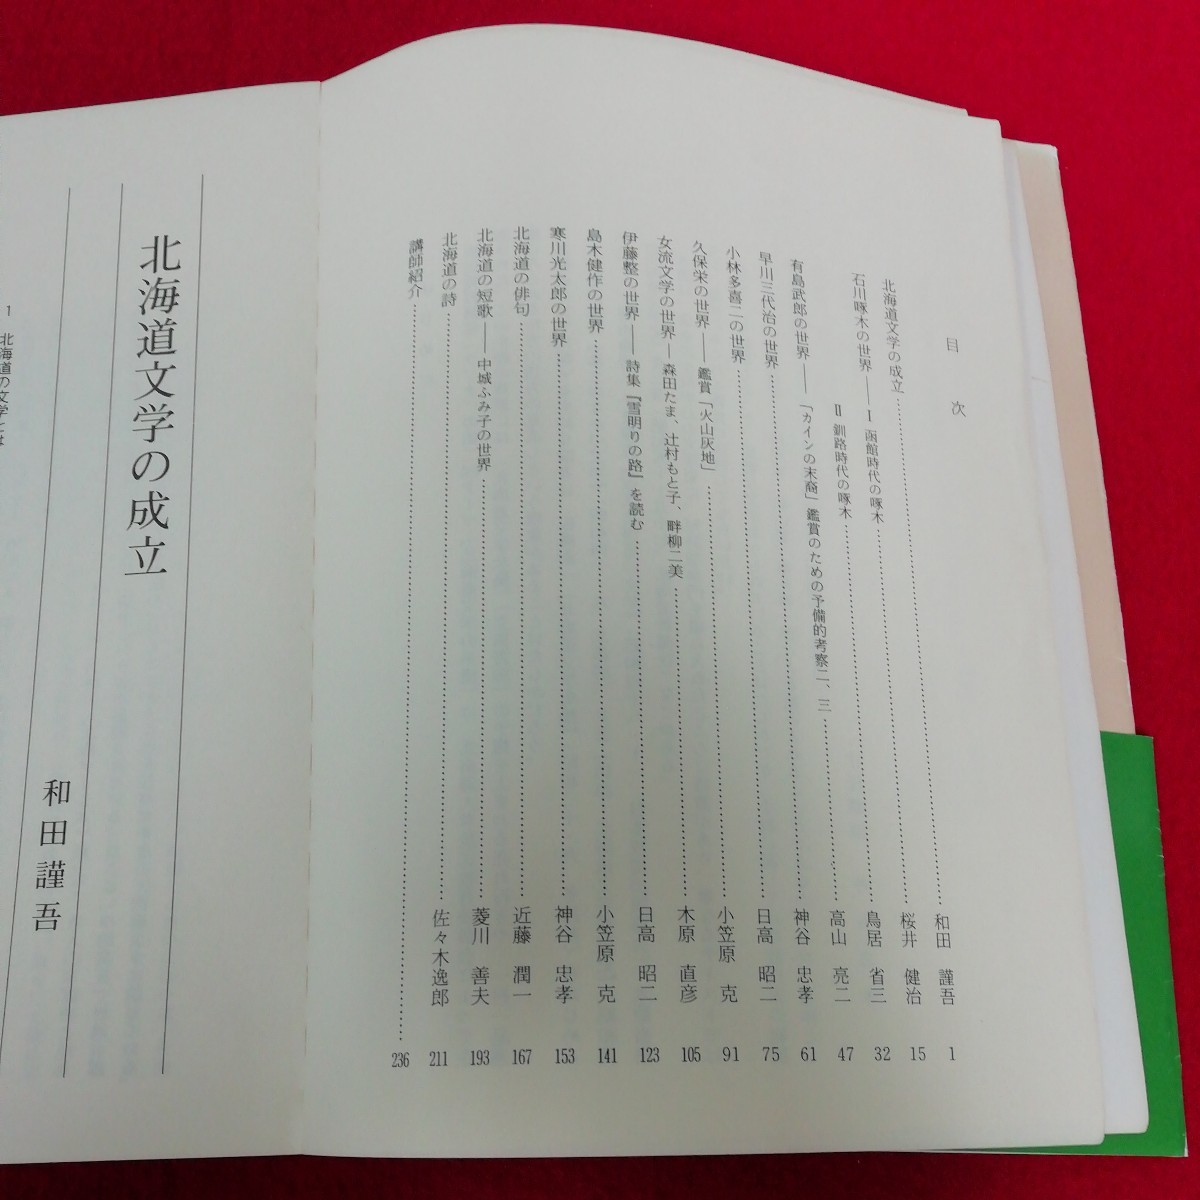 目次
北海道文学の成立……和田 謹吾 1
石川啄木の世界――Ⅰ 函館時代の啄木……桜井 健治 15
Ⅱ 釧路時代の啄木……鳥居 省三 32
有島武郎の世界――「カインの末裔」鑑賞のための予備的考察二、三……高山 亮二 47
早川三代治の世界……神谷 忠孝 61
小林多喜二の世界……日高 昭二 75
久保栄の世界――鑑賞「火山灰地」……小笠原 克 91
女流文学の世界―森田たま、辻村もと子、畔柳二美……木原 直彦 105
伊藤整の世界――詩集『雪明りの路』を読む……日高 昭二 123
島木健作の世界……小笠原 克 141
寒川光太郎の世界……神谷 忠孝 153
北海道の俳句……近藤 潤一 167
北海道の短歌――中城ふみ子の世界……菱川 善夫 193
北海道の詩……佐々木逸郎 211
講師紹介……236
北海道文学の成立
和田謹吾
1 北海道の文学とは